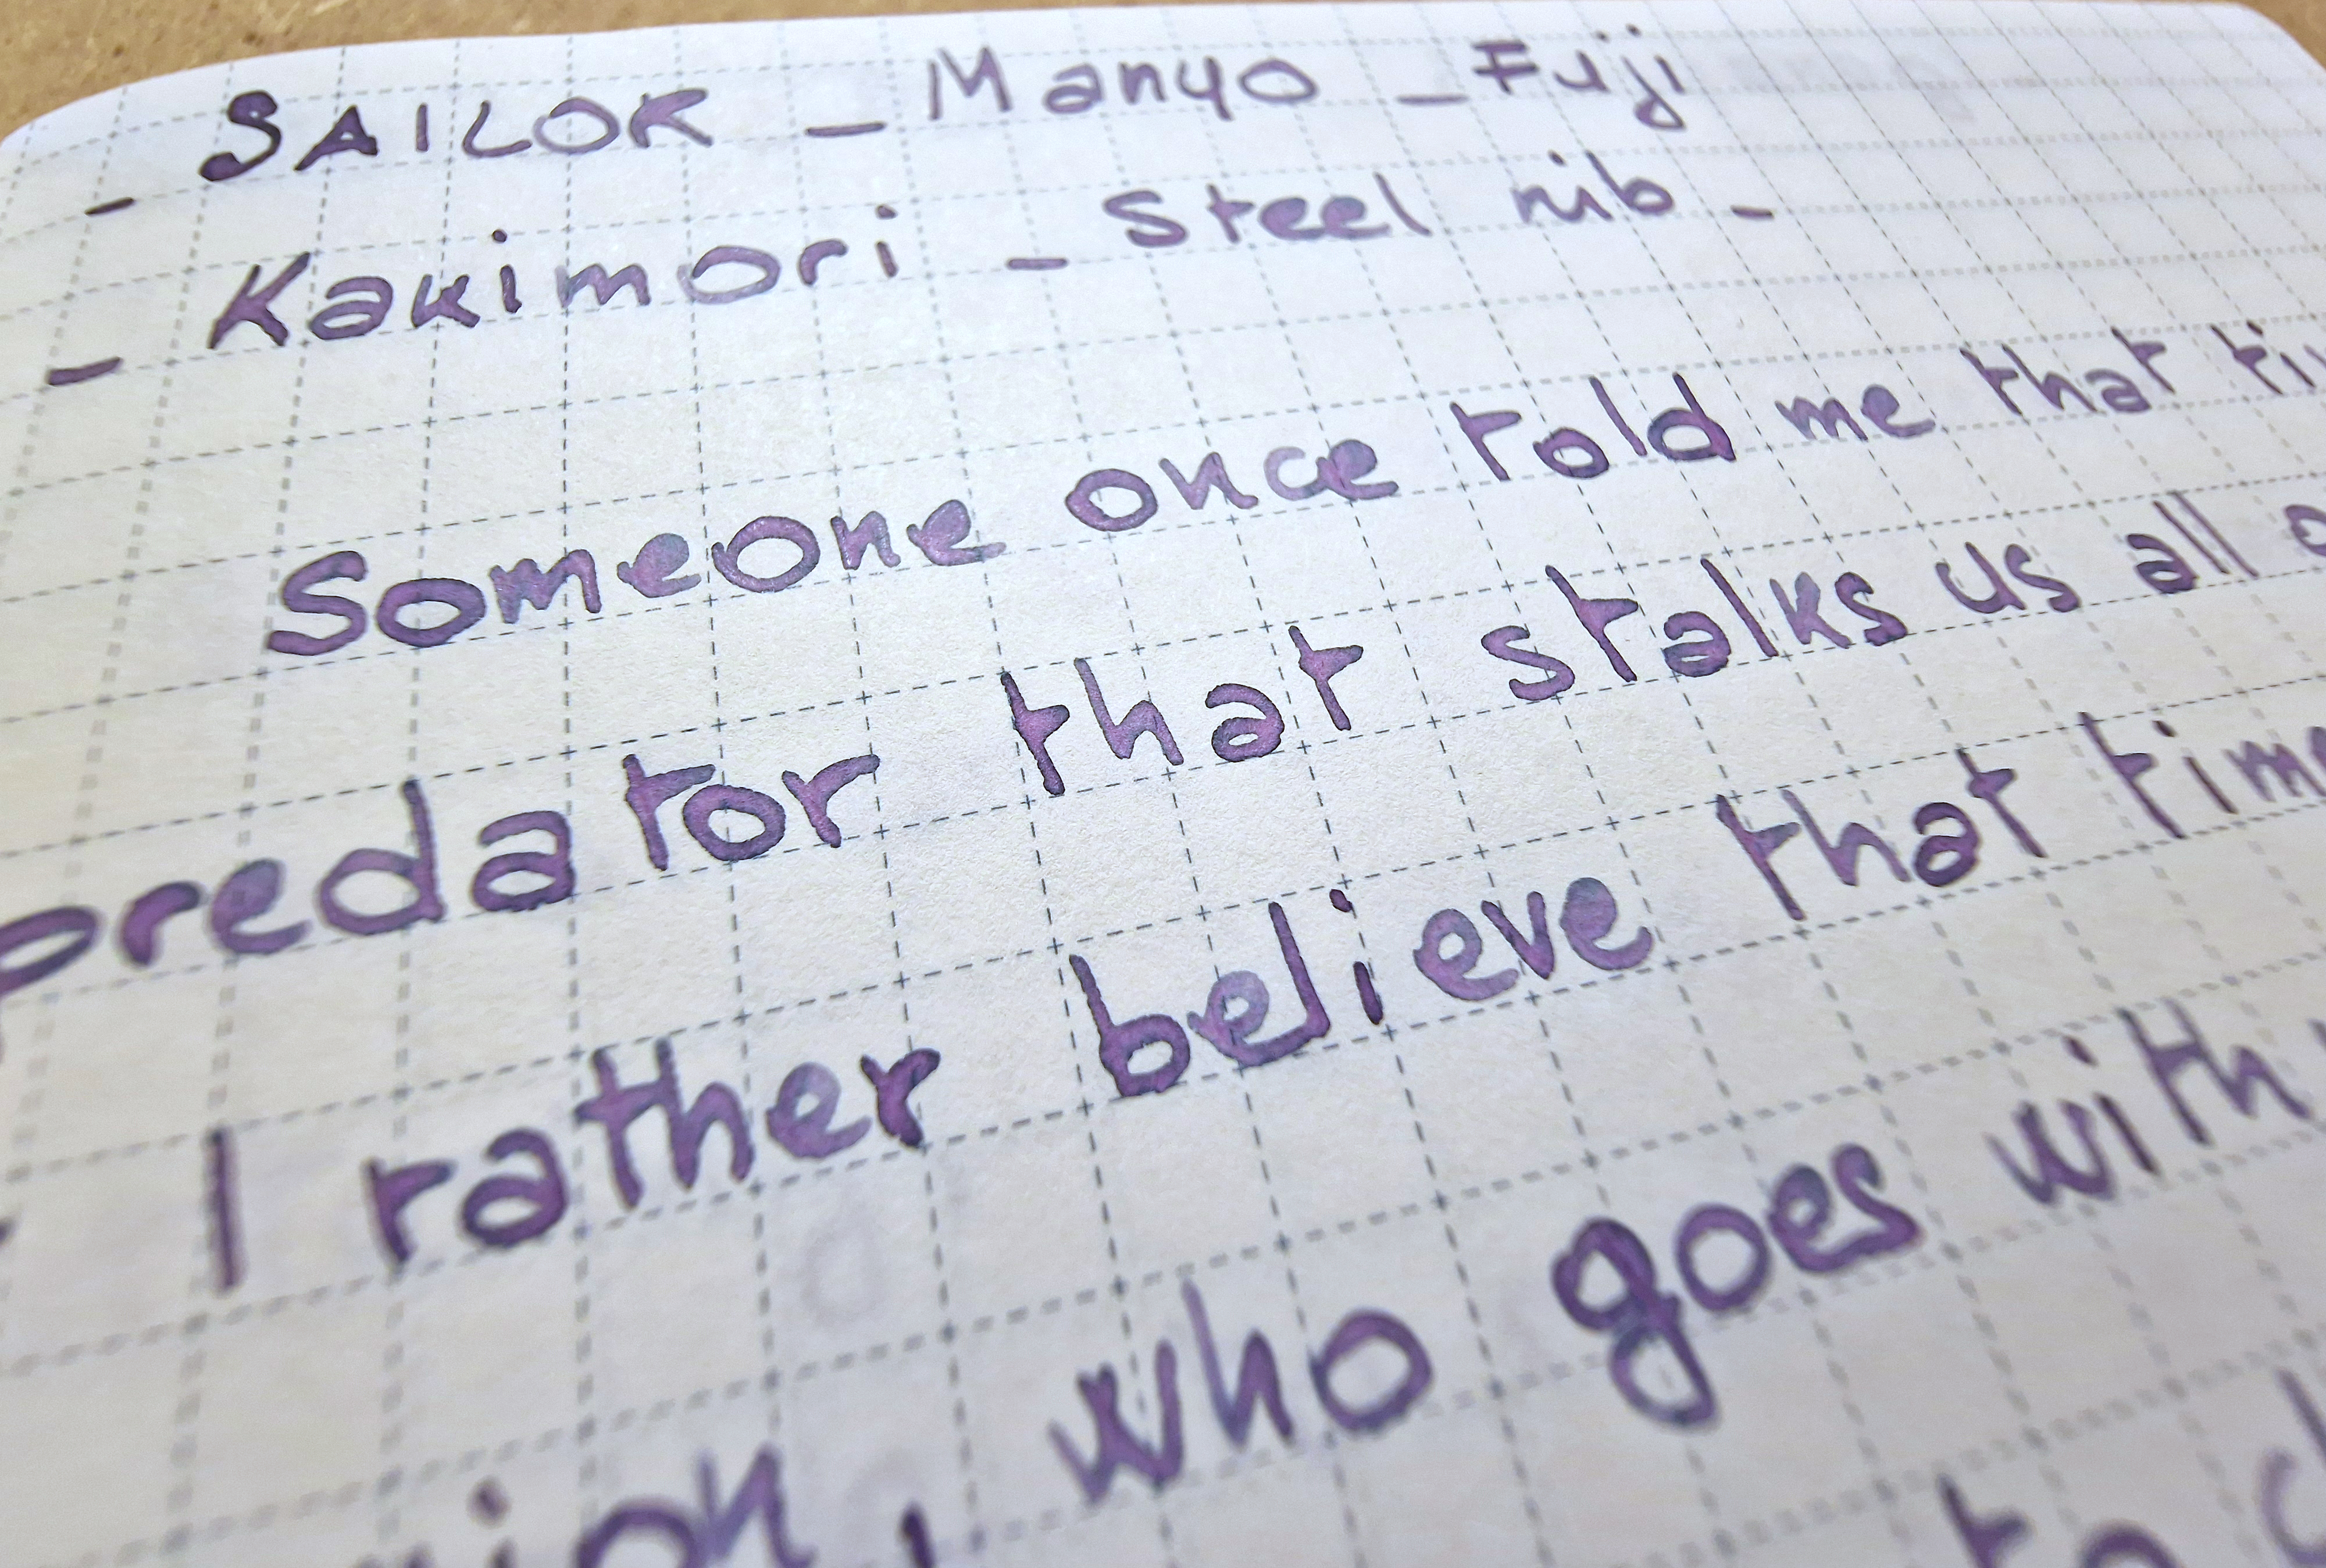 - SAILOR - Manyo - Fuji
- Kakimori - Steel nib -
Someone once told me that
predator that stalks us all
I rather believe that time
who goes with
to